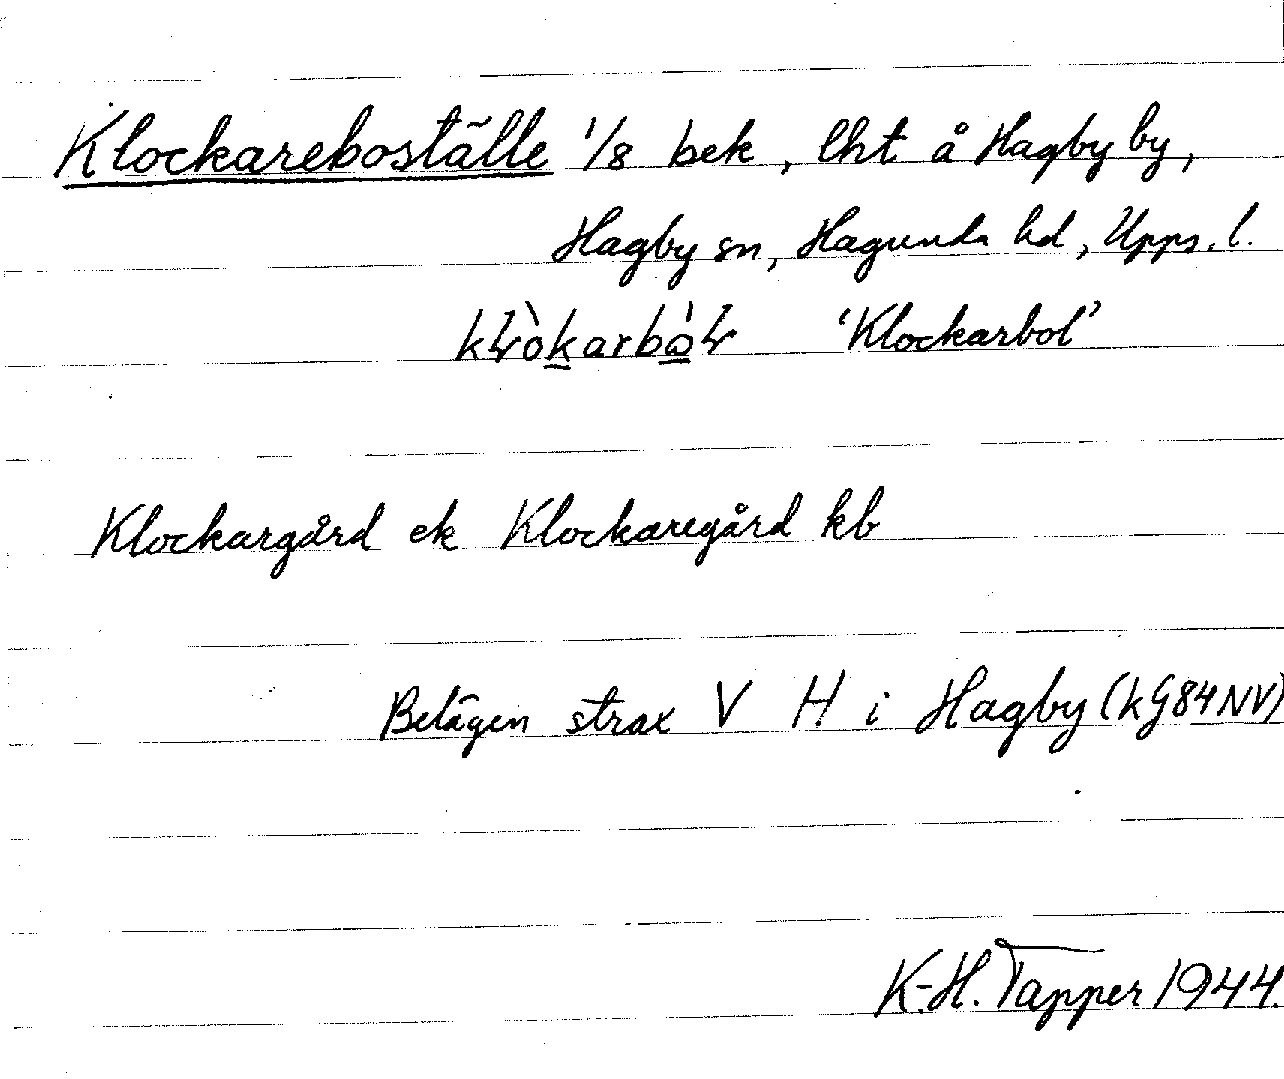 Klockareboställe 1/8 bek, lht å Hagby by,
Hagby sn, Hagunda hd, Upps. l.
'Klockarbol'
Klockargård ek Klockaregård kb
Belägen strax V H i Hagby (kG84NV)
K.-H. Tapper 1944.